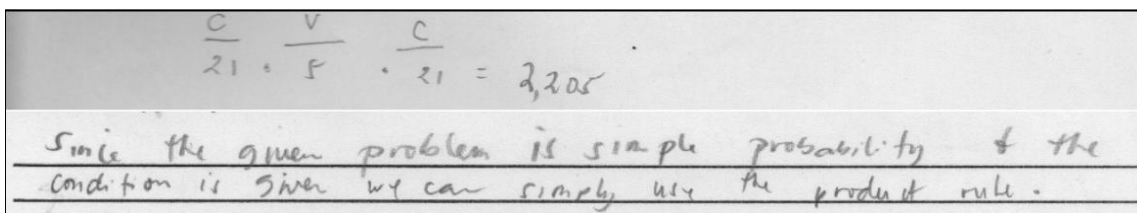 C V C
21 · 5 · 21 = 2,205
Since the given problem is simple probability & the
condition is given we can simply use the product rule.